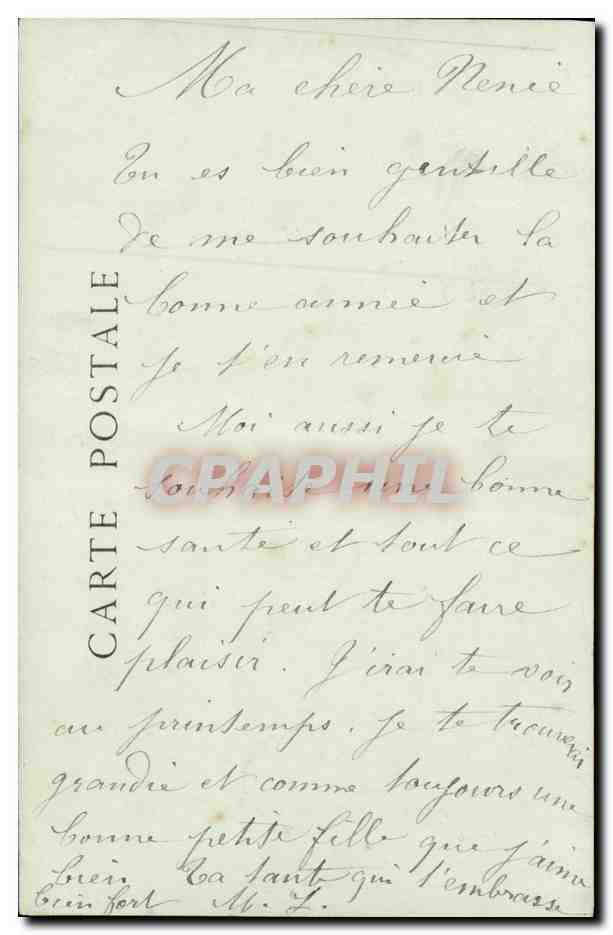 Ma chère Renée
Tu es bien gentille
de me souhaiter la
bonne année et
je t'en remercie
Moi aussi je te
souhaite une bonne
santé et tout ce
qui peut te faire
plaisir. J'irai te voir
au printemps. Je te trouverai
grandie et comme toujours une
bonne petite fille que j'aime
bien Ta tante qui t'embrasse
bien fort M. L.
CARTE POSTALE
CPAPHIL